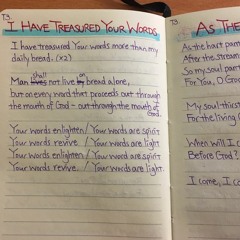 T3.
I HAVE TREASURED YOUR WORDS
I have treasured Your words more than my
daily bread. (x2)
Man shall not live on bread alone,
but on every word that proceeds out through
the mouth of God - out through the mouth of
God.
Your words enlighten / Your words are spirit
Your words revive / Your words are light
Your words enlighten / Your words are spirit
Your words revive / Your words are light.
T3.
AS THE
As the hart pan
After the stream
So my soul pant
For You, O Go
My soul thirst
For the living
When will I c
Before God?
I come, I c